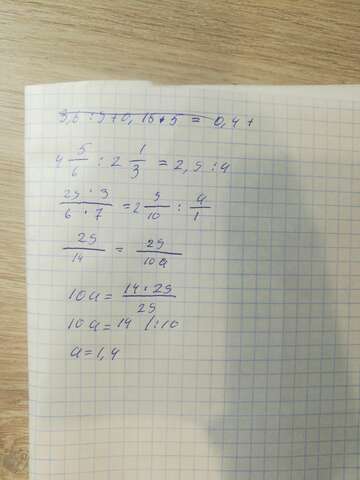 3,6 : 9 + 0,15 * 5 = 0,4 +
4 5/6 : 2 1/3 = 2,5 : a
29 * 3 / 6 * 7 = 2 5/10 : a/1
29/14 = 25/10a
10a = 14 * 25 / 25
10a = 14 /:10
a = 1,4